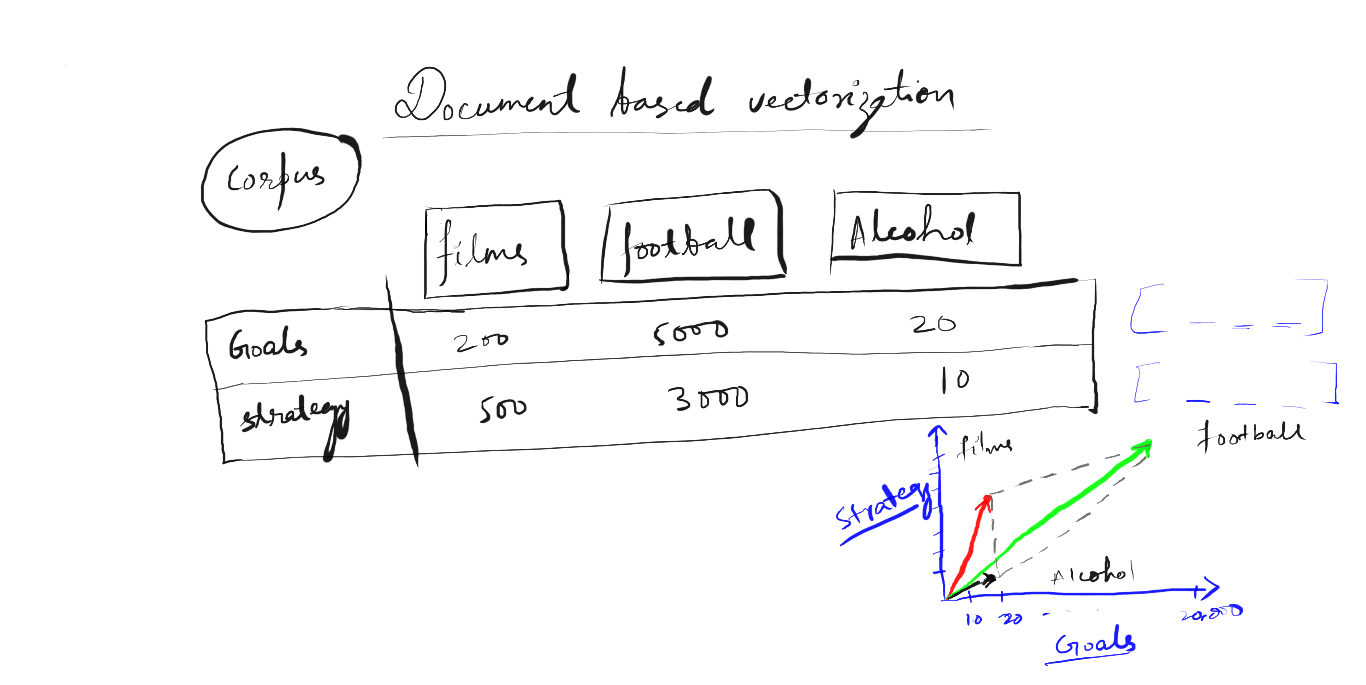 Document based vectorization
Corpus
films football Alcohol
Goals 200 5000 20
strategy 500 3000 10
football
films
strategy
Alcohol
10 20 20,000
Goals